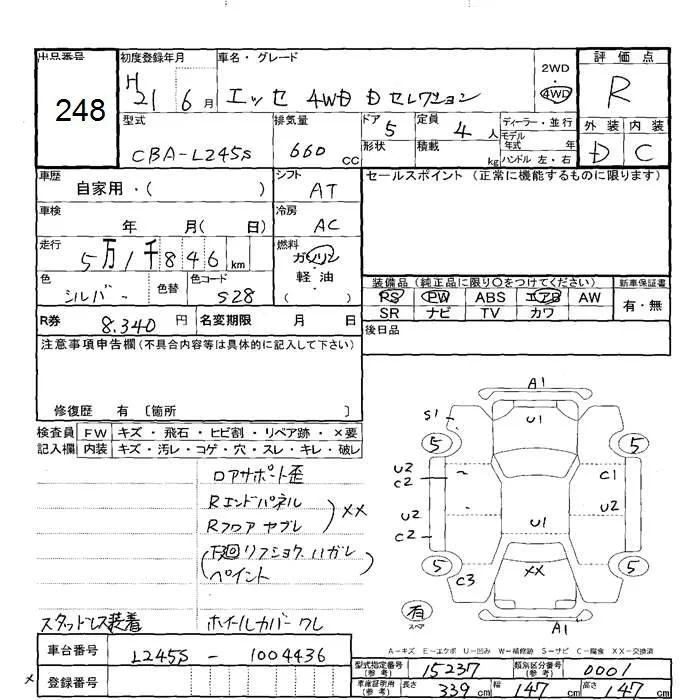 出品番号 初度登録年月 車名・グレード 評価点
248 H 21 6月 エッセ 4WD Dセレクション 2WD 4WD R
型式 排気量 ドア 5 定員 4人 ディーラー・並行 外装 内装
CBA-L245S 660 cc 形状 積載 kg モデル年式 年 D C
ハンドル 左・右
車歴 自家用・( ) シフト AT セールスポイント(正常に機能するものに限ります)
車検 年 月( 日) 冷房 AC
走行 5万1千846km 燃料 ガソリン
軽・油
( )
色 シルバー 色替 色コード S28
装備品(純正品に限り○をつけてください) 新車保証書
PS PW ABS エアB AW 有・無
SR ナビ TV カワ
R券 8.340円 名変期限 月 日 後日品
注意事項申告欄(不具合内容等は具体的に記入して下さい)
修復歴 有 [箇所 ]
検査員 FW キズ・飛石・ヒビ割・リペア跡・×要
記入欄 内装 キズ・汚レ・コゲ・穴・スレ・キレ・破レ
ロアサポート歪
Rエンドパネル
Rフロア ヤブレ
XX
下廻リ
ペイント
スタットレス装着 ホイールカバーワレ
A1
S1 U1
5 5
U2 C2 C1
U2 C2 U1 U2
5 C3 XX 5
有 スペア A1
A－キズ E－エクボ U－凹み W－補修跡 S－サビ C－腐食 XX－交換済
車台番号 L245S - 1004436
型式指定番号(参考) 15237 類別区分番号(参考) 0001
× 登録番号
車庫証明用(参考) 長さ 339cm 幅 147cm 高さ 147cm